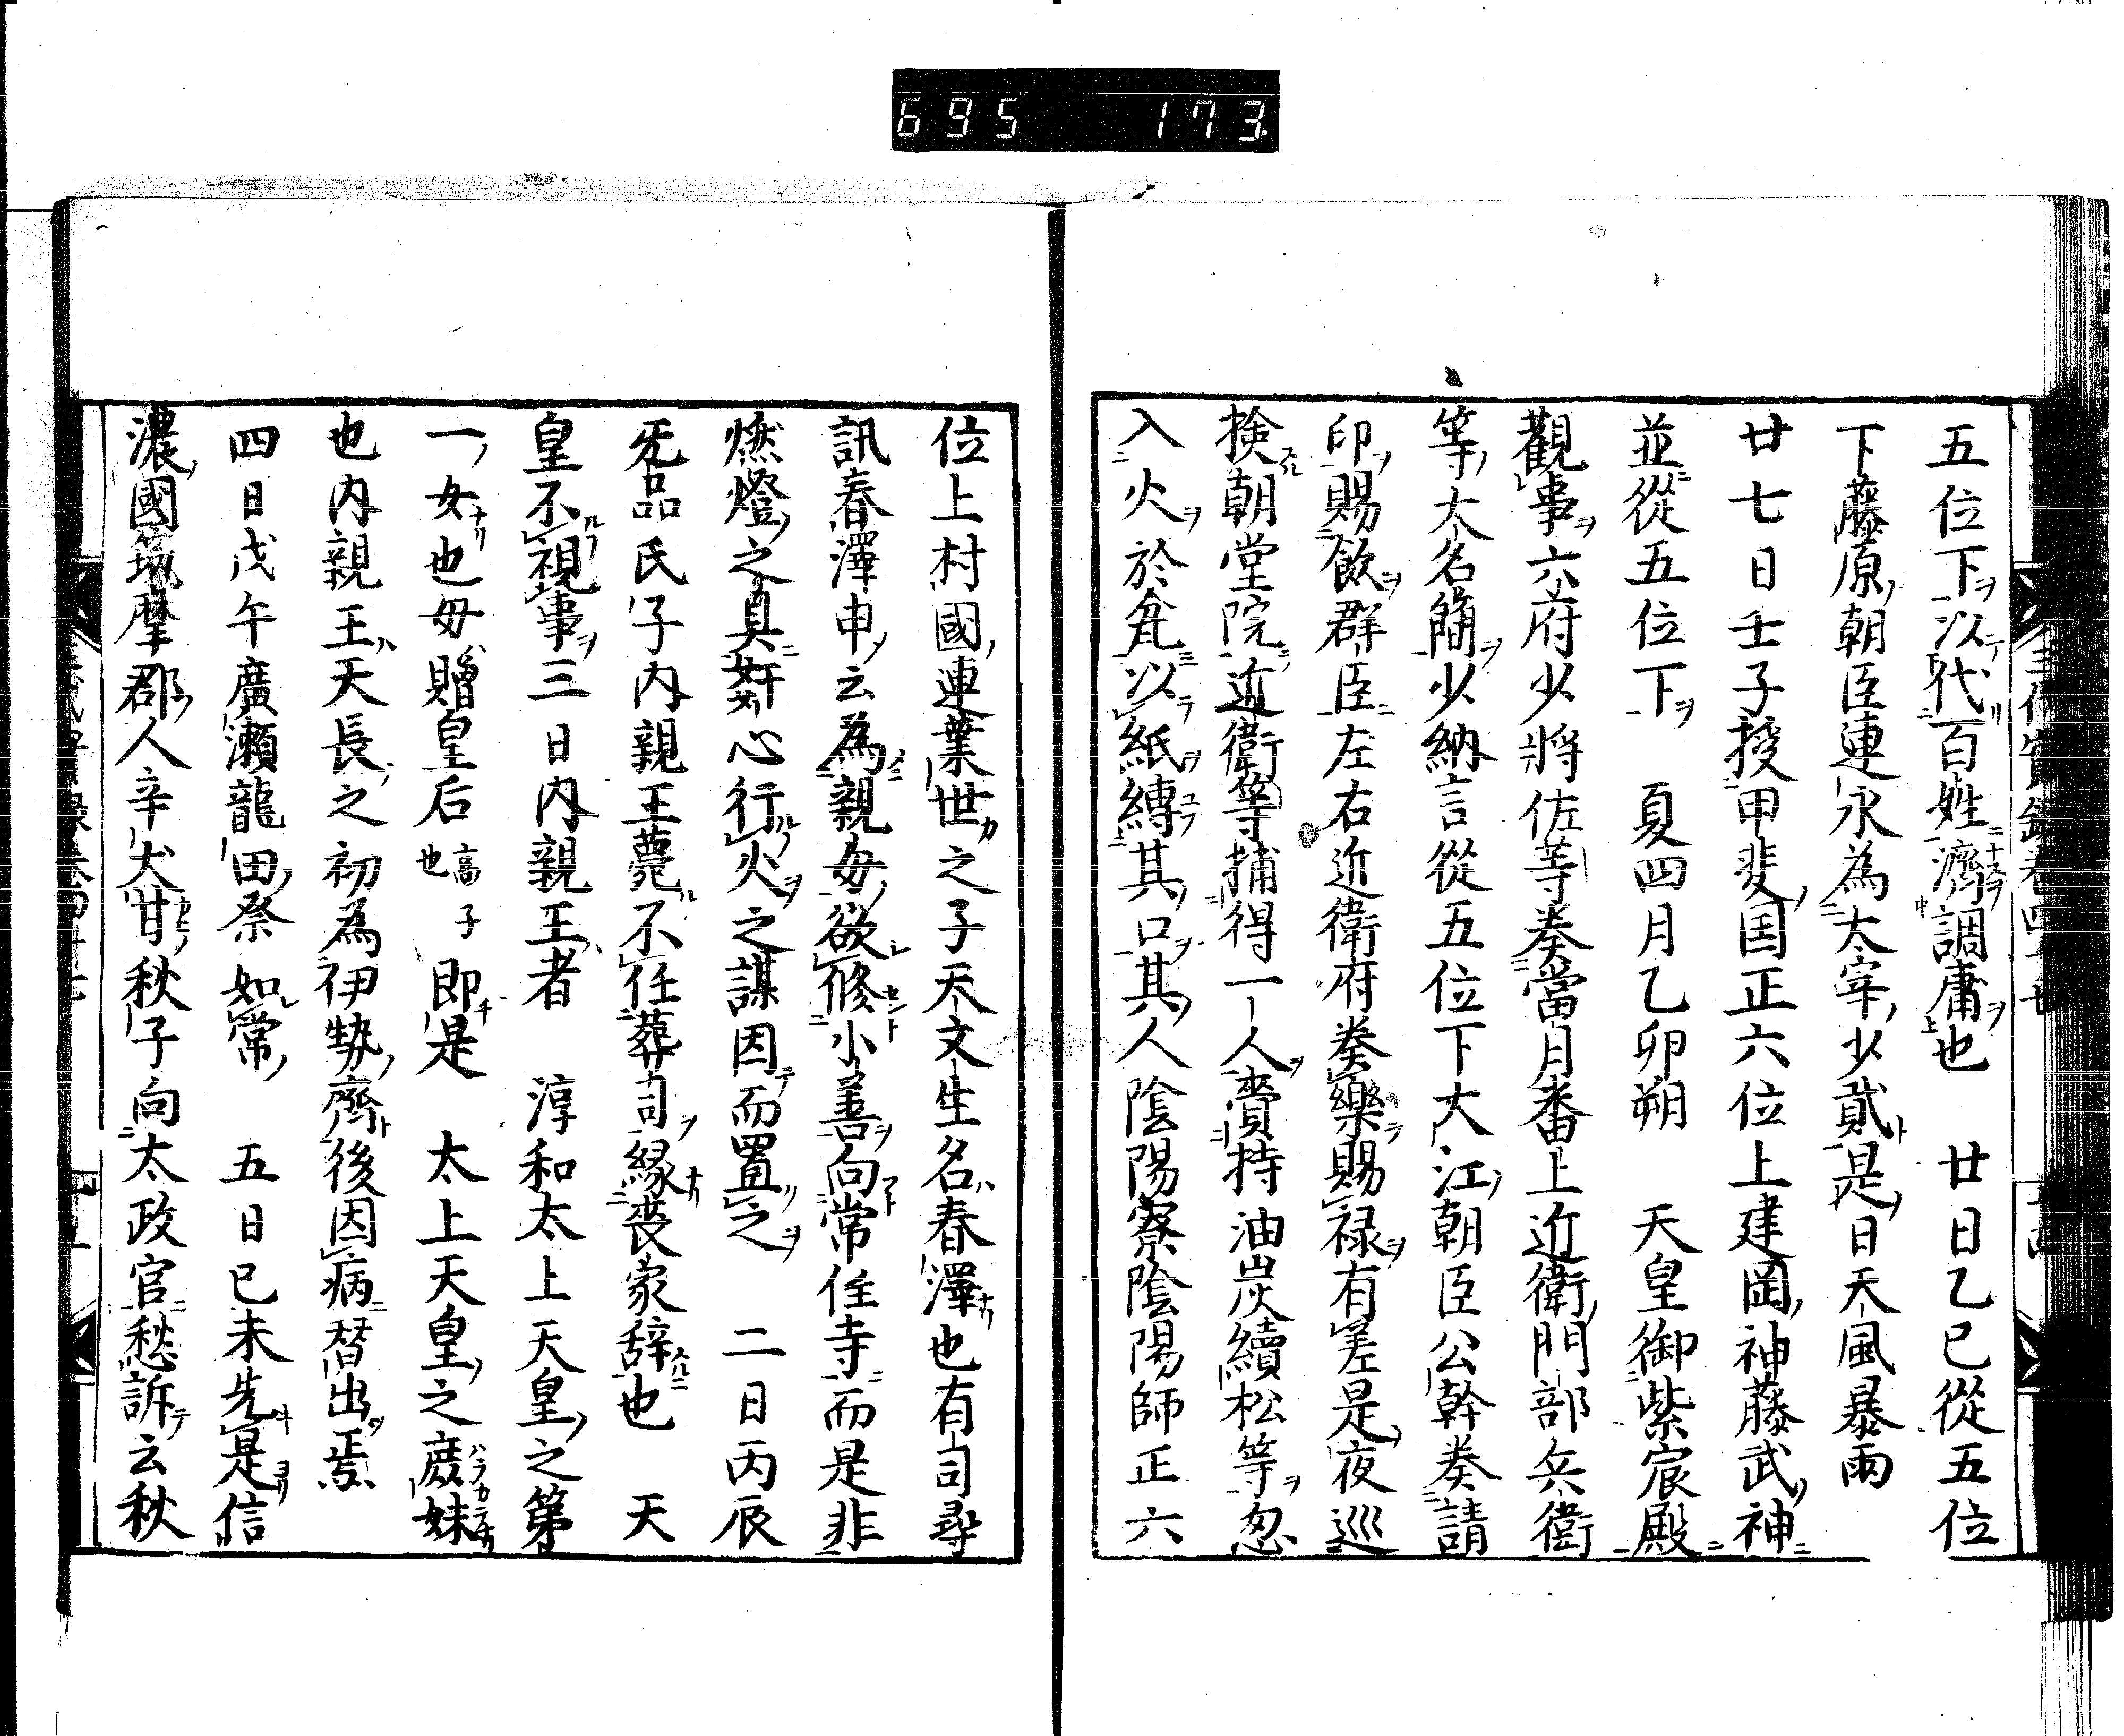 695 173
五位下以代百姓濟調庸也 廿日乙巳從五位
下藤原朝臣連永為大宰少貳是日天風暴雨
廿七日壬子授甲斐国正六位上建岡神藤武神
並從五位下 夏四月乙卯朔 天皇御紫宸殿
觀事六府少將佐等奏當月番上近衛門部兵衛
等大名簡少納言從五位下大江朝臣公幹奏請
印賜飲群臣左右近衛府奏樂賜禄有差是夜巡
檢朝堂院近衛等捕得一人賷持油炭續松等忽
入火於瓫以紙縛其口其人陰陽寮陰陽師正六
位上村國連業世之子天文生名春澤也有司尋
訊春澤申云為親母欲修小善向常住寺而是非
燃燈之具奸心行火之謀因而置之 二日丙辰
无品氏子内親王薨不任葬司縁喪家辞也 天
皇不視事三日内親王者 淳和太上天皇之第
一女也母贈皇后高子也即是 太上天皇之庶妹
也内親王天長之初為伊勢齊後因病替出焉
四日戊午廣瀬龍田祭如常 五日己未先是信
濃國筑摩郡人辛犬甘秋子向太政官愁訴云秋